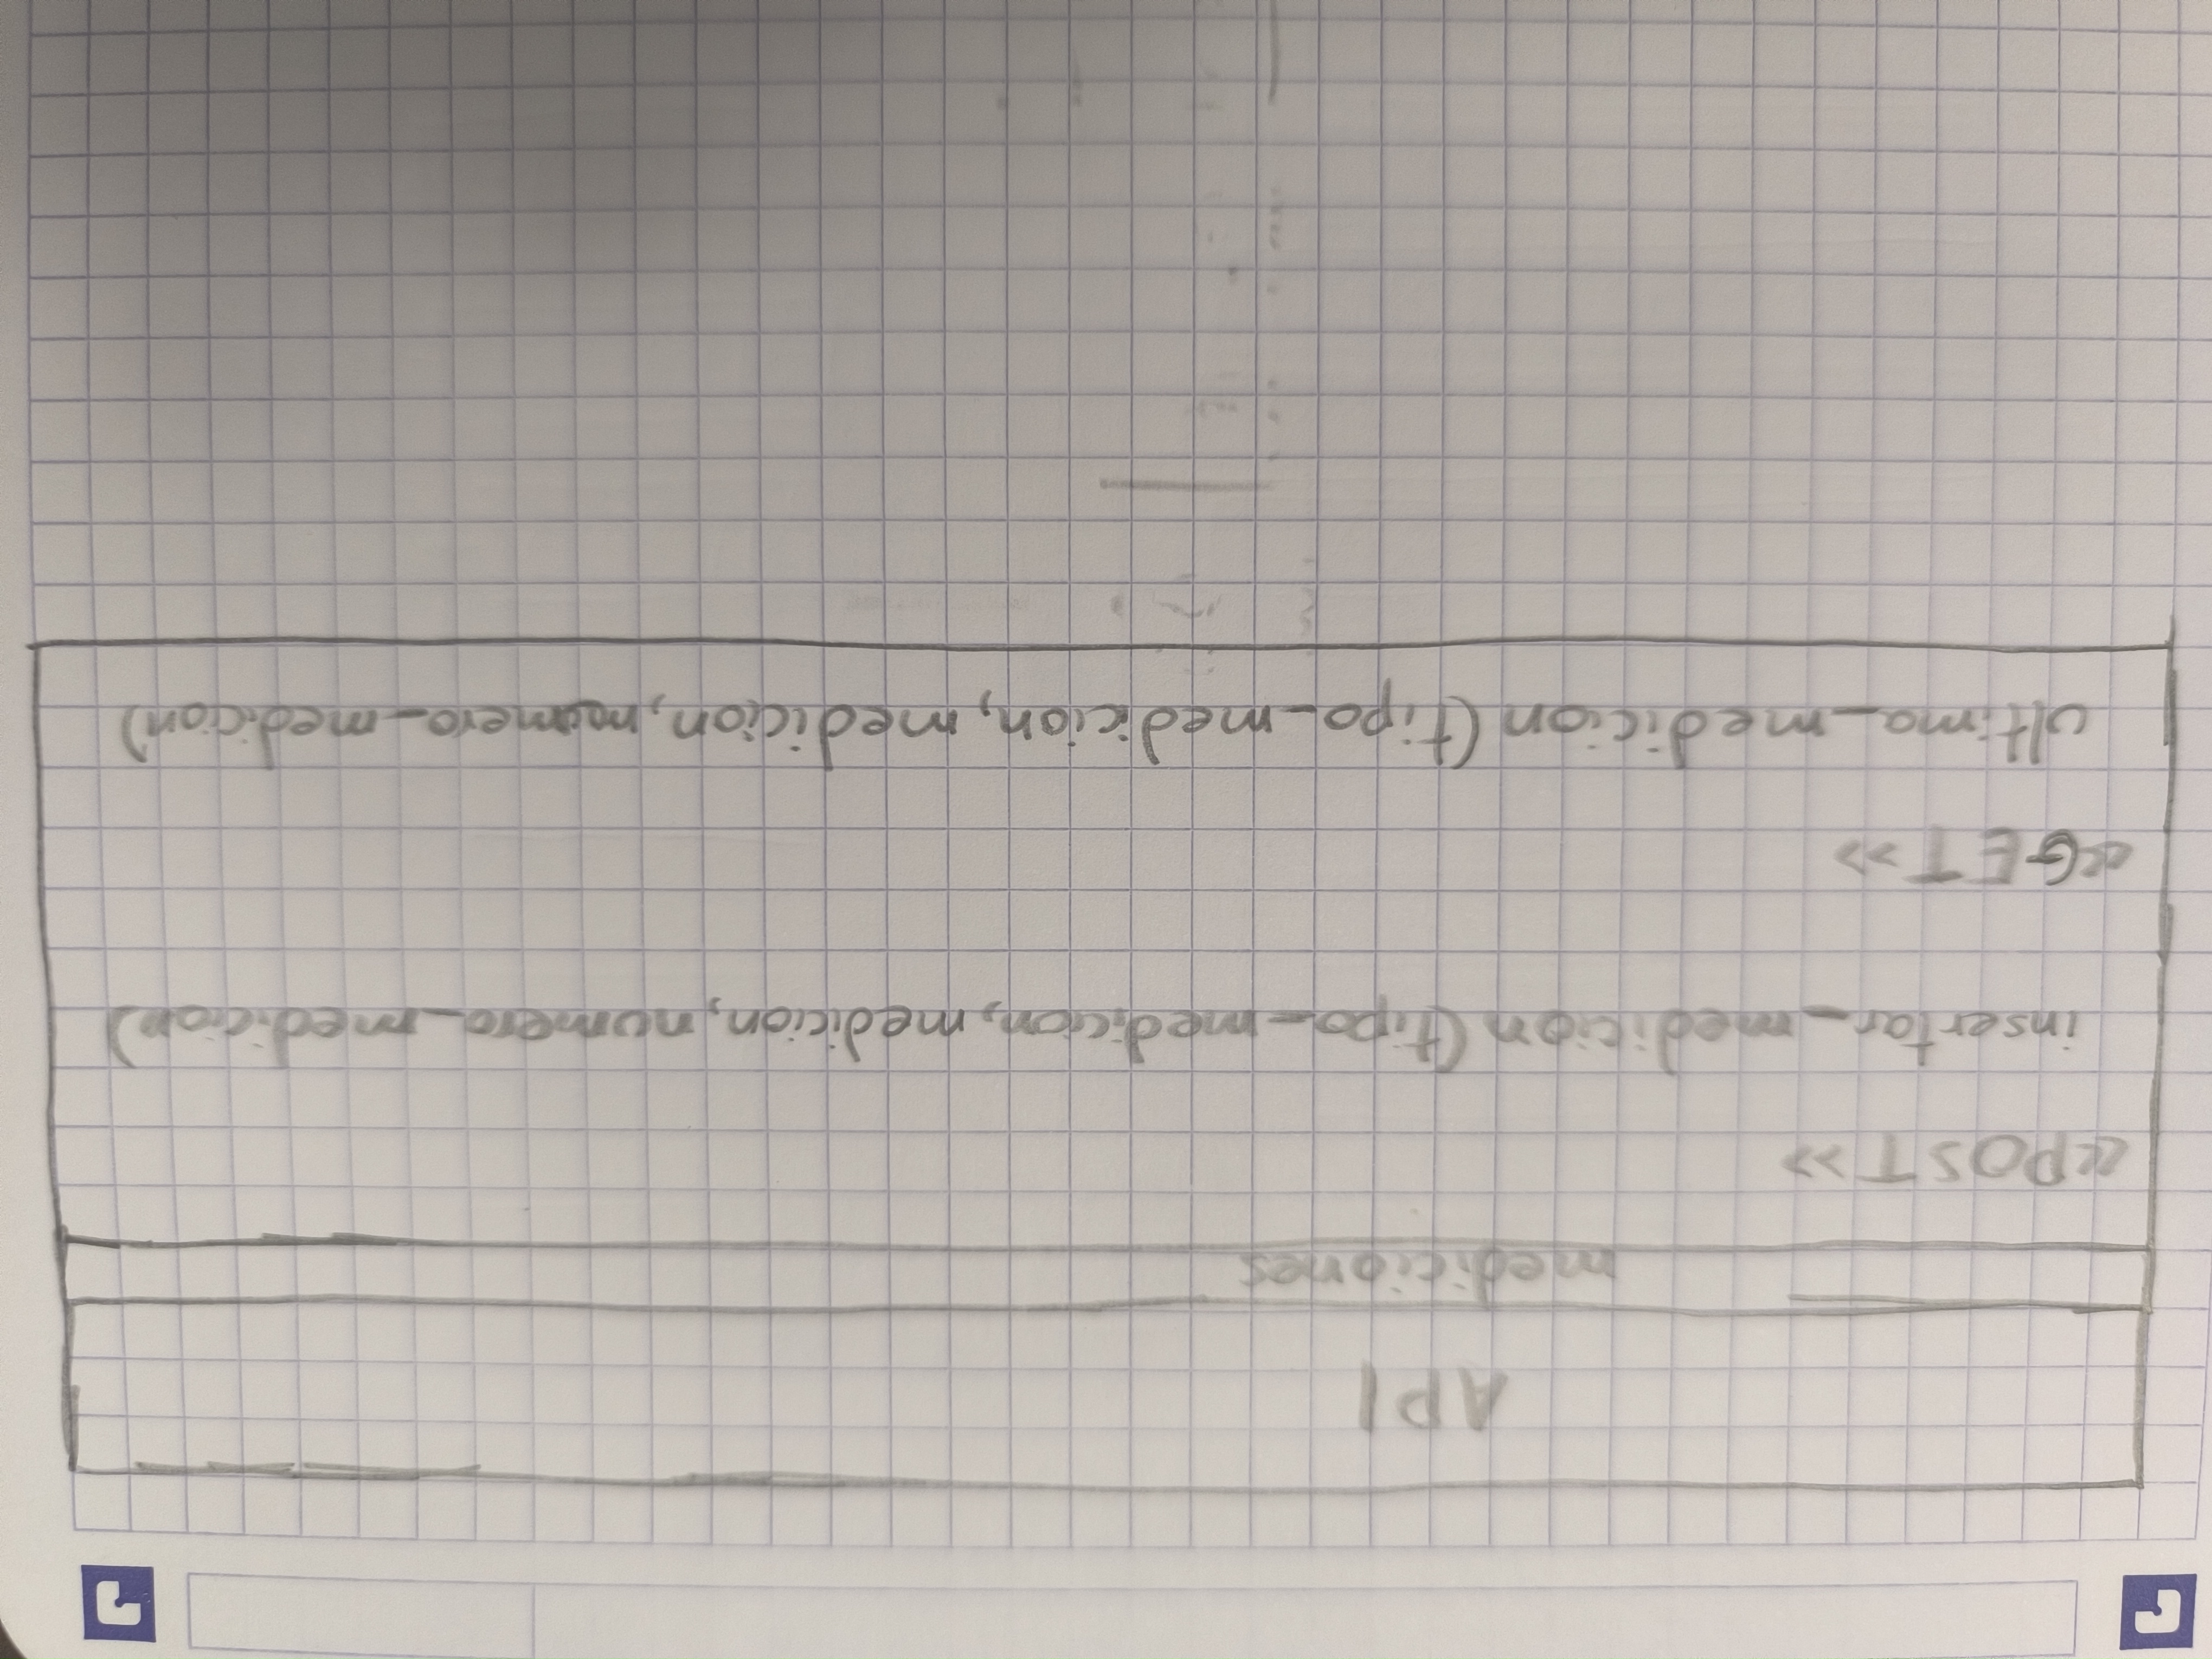 API
mediciones
<<POST>>
insertar_medicion (tipo_medicion, medicion, numero_medicion)
<<GET>>
ultima_medicion (tipo_medicion, medicion, numero_medicion)